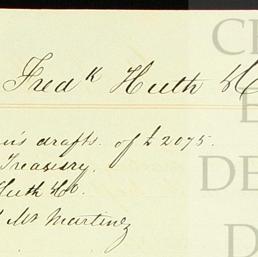 Fredk Huth &
in's drafts. of £2075.
Treasury.
Huth & Co.
Mr Martinez
C
E
DE
D